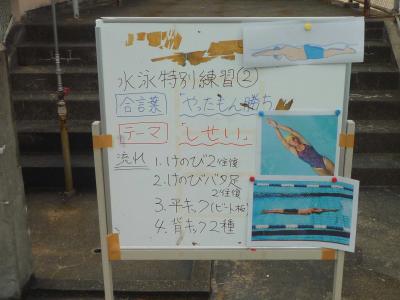 水泳特別練習②
合言葉 やったもん勝ち
テーマ 「しせい」
流れ 1.けのび2往復
2.けのびバタ足
2往復
3.平キック(ビート板)
4.背キック2種